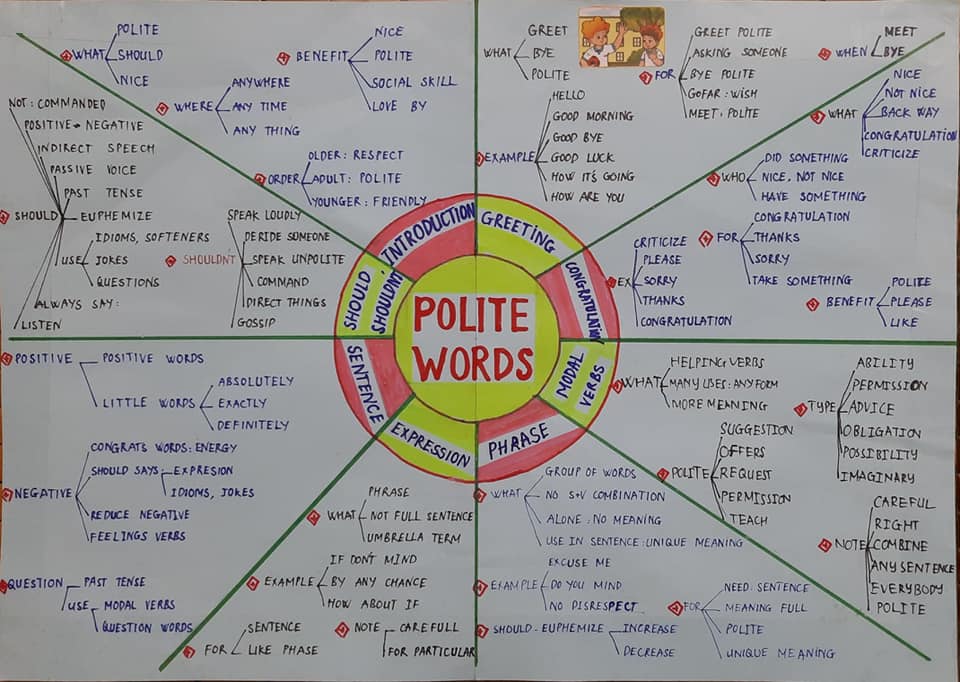 POLITE
WORDS
INTRODUCTION
WHAT
POLITE
SHOULD
NICE
WHERE
ANYWHERE
ANY TIME
ANY THING
BENEFIT
NICE
POLITE
SOCIAL SKILL
LOVE BY
ORDER
OLDER: RESPECT
ADULT: POLITE
YOUNGER: FRIENDLY
GREETING
WHAT
GREET
BYE
POLITE
FOR
GREET POLITE
ASKING SOMEONE
BYE POLITE
GOFAR: WISH
MEET: POLITE
EXAMPLE
HELLO
GOOD MORNING
GOOD BYE
GOOD LUCK
HOW IT'S GOING
HOW ARE YOU
WHEN
MEET
BYE
CONGRATULATION
WHAT
NICE
NOT NICE
BACK WAY
CONGRATULATION
CRITICIZE
WHO
DID SOMETHING
NICE, NOT NICE
HAVE SOMETHING
FOR
CONGRATULATION
THANKS
SORRY
TAKE SOMETHING
EX
CRITICIZE
PLEASE
SORRY
THANKS
CONGRATULATION
BENEFIT
POLITE
PLEASE
LIKE
MODAL
VERBS
WHAT
HELPING VERBS
MANY USES: ANY FORM
MORE MEANING
TYPE
ABILITY
PERMISSION
ADVICE
OBLIGATION
POSSIBILITY
IMAGINARY
POLITE
SUGGESTION
OFFERS
REQUEST
PERMISSION
TEACH
NOTE
CAREFUL
RIGHT
COMBINE
ANY SENTENCE
EVERYBODY
POLITE
PHRASE
WHAT
GROUP OF WORDS
NO S+V COMBINATION
ALONE: NO MEANING
USE IN SENTENCE: UNIQUE MEANING
EXAMPLE
EXCUSE ME
DO YOU MIND
NO DISRESPECT
FOR
NEED: SENTENCE
MEANING FULL
POLITE
UNIQUE MEANING
SHOULD: EUPHEMIZE
INCREASE
DECREASE
EXPRESSION
WHAT
PHRASE
NOT FULL SENTENCE
UMBRELLA TERM
EXAMPLE
IF DON'T MIND
BY ANY CHANCE
HOW ABOUT IF
FOR
SENTENCE
LIKE PHASE
NOTE
CAREFULL
FOR PARTICULAR
SENTENCE
POSITIVE
POSITIVE WORDS
LITTLE WORDS
ABSOLUTELY
EXACTLY
DEFINITELY
NEGATIVE
CONGRATS WORDS: ENERGY
SHOULD SAYS
EXPRESION
IDIOMS, JOKES
REDUCE NEGATIVE
FEELINGS VERBS
QUESTION
PAST TENSE
USE
MODAL VERBS
QUESTION WORDS
SHOULD
SHOULDN'T
SHOULD
NOT: COMMANDED
POSITIVE → NEGATIVE
INDIRECT SPEECH
PASSIVE VOICE
PAST TENSE
EUPHEMIZE
USE
IDIOMS, SOFTENERS
JOKES
QUESTIONS
ALWAYS SAY:
LISTEN
SHOULDN'T
SPEAK LOUDLY
DERIDE SOMEONE
SPEAK UNPOLITE
COMMAND
DIRECT THINGS
GOSSIP